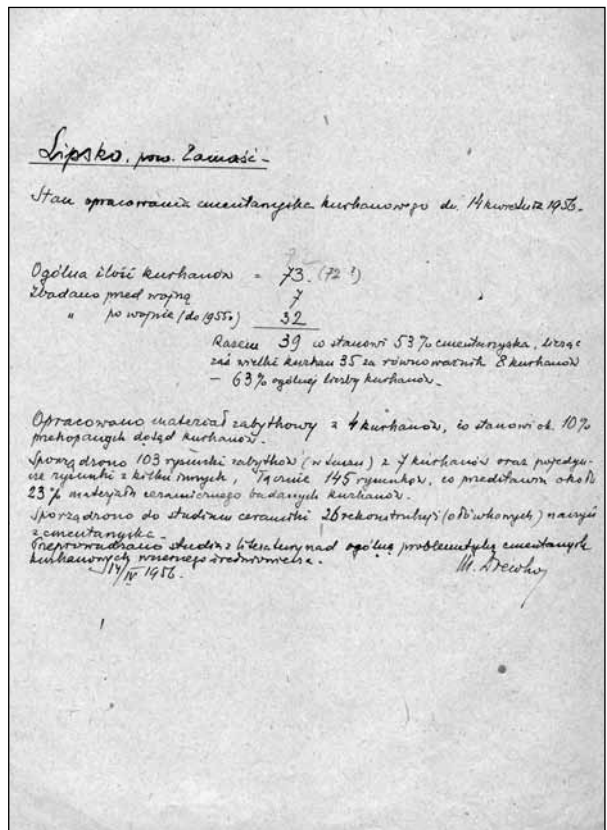 Lipsko, pow. Zamość -
Stan opracowania cmentarzyska kurhanowego dn. 14 kwietnia 1956.
72
Ogólna ilość kurhanów = 73. (72!)
Zbadano przed wojną 7
" po wojnie (do 1955) 32
Razem 39 co stanowi 53% cmentarzyska, licząc
zaś wielki kurhan 35 za równoważnik 8 kurhanów
- 63% ogólnej liczby kurhanów.
Opracowano materiał zabytkowy z 4 kurhanów, co stanowi ok. 10%
przekopanych dotąd kurhanów.
Sporządzono 103 rysunki zabytków (w tuszu) z 7 kurhanów oraz pojedyn-
cze rysunki z kilku innych, łącznie 145 rysunków, co przedstawia około
23% materjału ceramicznego badanych kurhanów.
Sporządzono do studium ceramiki 26 rekonstrukcji (ołówkowych) naczyń
z cmentarzyska.
Przeprowadzono studia z literatury nad ogólną problematyką cmentarzysk
kurhanowych wczesnego średniowiecza.
14/IV 1956.
M. Drewko